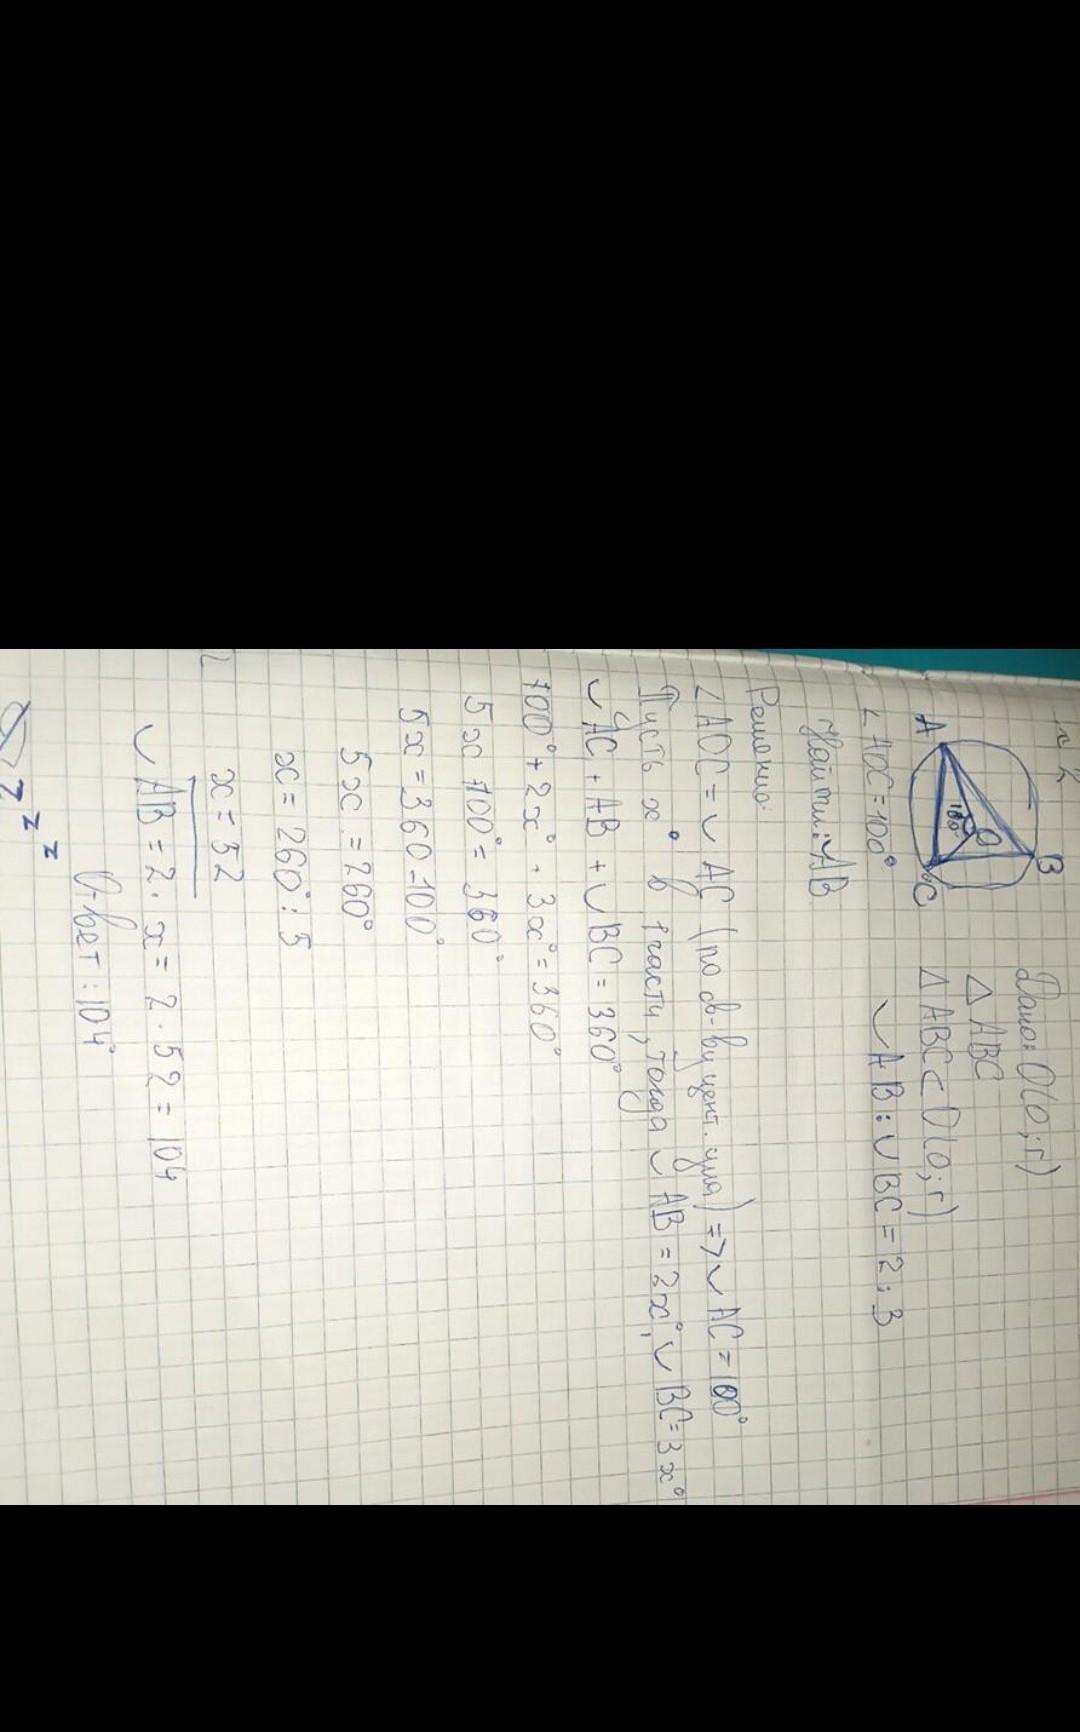 №2
Дано: O(o;r)
△ ABC
△ ABC ⊂ O(o;r)
◡ AB : ◡ BC = 2 : 3
A
B
C
O
100°
∠ AOC = 100°
Найти: ◡AB
Решение:
∠ AOC = ◡ AC (по св-ву цент. угла) => ◡ AC = 100°
Пусть x° в 1 части, тогда ◡ AB = 2x°, ◡ BC = 3x°
◡ AC + AB + ◡ BC = 360°
100° + 2x° + 3x° = 360°
5x + 100° = 360°
5x = 360 - 100°
5x = 260°
x = 260° : 5
x = 52
◡ AB = 2 · x = 2 · 52 = 104
Ответ: 104°
z z z